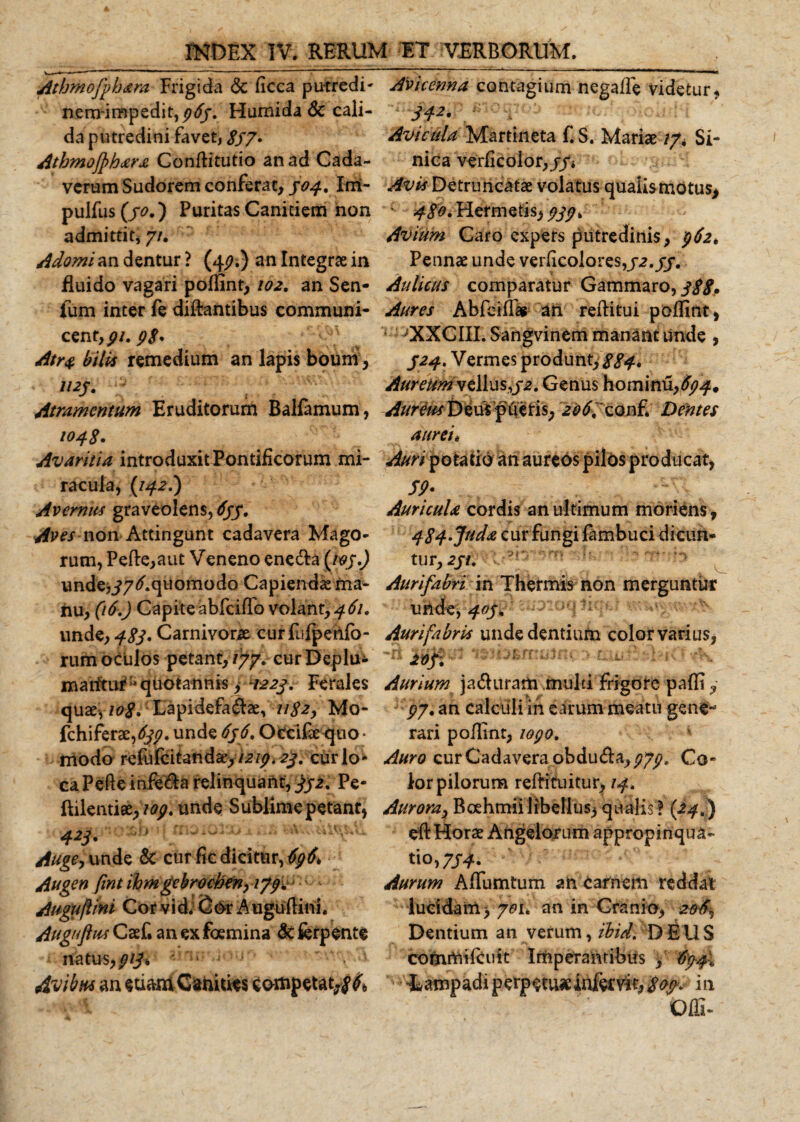 INDEX IV. RERUM ET VERBORUM.
Athmosphæra Frigida & sicca putredi-
nem impedit, 965. Humida & cali-
da putredini favet, 857.
Athmosphæræ Constitutio an ad Cada-
verum Sudorem conferat, 504. Im-
pulsus (50.) Puritas Canitiem non
admittit, 71.
Adomi an dentur? (49.) an Integræ in
fluido vagari possint, 102. an Sen-
sum inter se distantibus communi-
cent, 91. 98.
Atræ bilis remedium an lapis boum,
1125.
Atramentum Eruditorum Balsamum,
1048.
Avaritia introduxit Pontificorum mi-
racula, (142.)
Avernus graveolens, 655.
Aves non Attingunt cadavera Mago-
rum, Peste, aut Veneno enecta (105.)
unde, 376. quomodo Capiendæ ma-
nu, (16.) Capite abscisso volant, 461.
unde, 483. Carnivoræ cur suspenso-
rum oculos petant, 177. cur Deplu-
mantur quotannis, 1223. Ferales
quæ, 108. Lapidefactæ, 1182, Mo-
schiferæ, 639. unde 656. Occisæ quo-
modo resuscitandæ, 1219. 23. cur lo-
ca Peste infecta relinquant, 352. Pe-
stilentiæ, 109. unde Sublime petant,
423.
Auge, unde & cur sic dicitur, 696.
Augen sint ihm gebrochen, 179.
Augustini Cor vid. Cor Augustini.
Augustus Cæs. an ex fœmina & serpente
natus, 913.
Avibus an etiam Canities competat, 86.
Avicenna contagium negasse videtur,
342.
Avicula Martineta s. S. Mariæ 17. Si-
nica versicolor, 55.
Avis Detruncatæ volatus qualis motus,
480. Hermetis, 939.
Avium Caro expers putredinis, 962.
Pennæ unde versicolores, 52. 55.
Aulicus comparatur Gammaro, 388.
Aures Abscissæ an restitui possint,
XXCIII. Sangvinem manant unde,
524. Vermes produnt, 884.
Aureum vellus, 52. Genus hominũ, 694.
Aureus Deus pueris, 206. conf. Dentes
aurei.
Auri potatio an aureos pilos producat,
59.
Auriculæ cordis an ultimum moriens,
484. Judæ cur fungi sambuci dicun-
tur, 251.
Aurifabri in Thermis non merguntur
unde, 405.
Aurifabris unde dentium color varius,
205.
Aurium jacturam multi frigore passi,
97. an calculi in earum meatu gene-
rari possint, 1090.
Auro cur Cadavera obducta, 979. Co-
lor pilorum restituitur, 14.
Aurora, Bœhmii libellus, qualis? (24.)
est Horæ Angelorum appropinqua-
tio, 754.
Aurum Assumtum an carnem reddat
lucidam, 701. an in Cranio, 206.
Dentium an verum, ibid. DEUS
commiscuit Imperantibus, 694.
Lampadi perpetuæ inservit, 809. in
Offi-